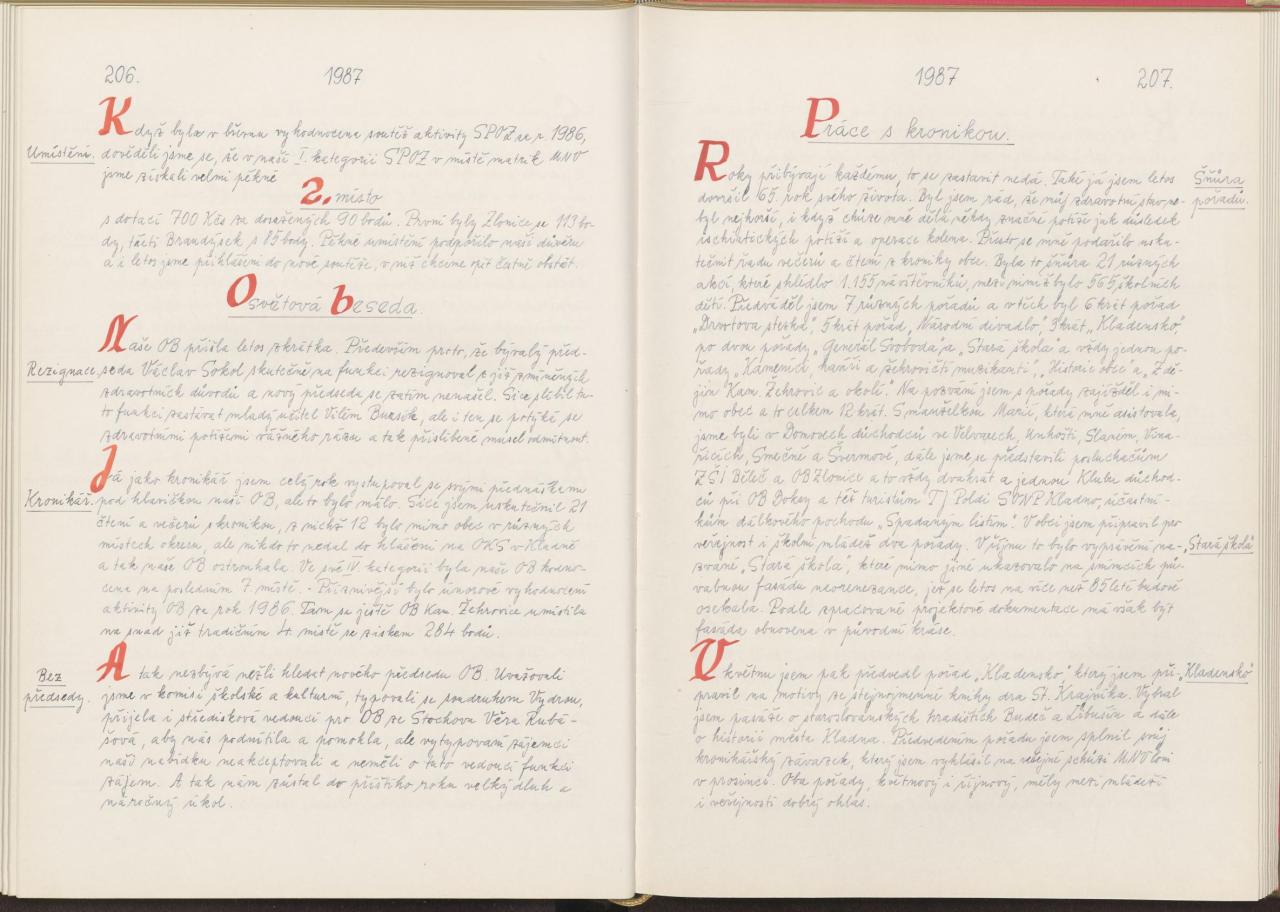 206. 1987
Když byla v březnu vyhodnocena soutěž aktivity SPOZ za r. 1986,
Umístění. dověděli jsme se, že v naší I. kategorii SPOZ v místě matrik MNV
jsme získali velmi pěkné
2. místo
s dotací 700 Kčs za dosažených 90 bodů. První byly Zlonice se 113 bo-
dy, třetí Brandýsek s 85 body. Pěkné umístění podpořilo naši důvěru
a i letos jsme přihlášeni do nové soutěže, v níž chceme opět čestně obstát.
Osvětová beseda.
Naše OB přišla letos zkrátka. Především proto, že bývalý před-
Rezignace. seda Václav Sokol skutečně na funkci rezignoval z již zmíněných
zdravotních důvodů a nový předseda se zatím nenašel. Sice slíbil tu-
to funkci zastávat mladý učitel Vilém Buzsík, ale i ten se potýká se
zdravotními potížemi vážného rázu a tak přislíbené musel odmítnout.
Já jako kronikář jsem celý rok vystupoval se svými přednáškami
Kronikář. pod hlavičkou naší OB, ale to bylo málo. Sice jsem uskutečnil 21
čtení a večerů s kronikou, z nichž 12 bylo mimo obec v různých
místech okresu, ale nikdo to nedal do hlášení na OKS v Kladně
a tak naše OB ostrouhala. Ve své IV. kategorii byla naše OB hodno-
cena na posledním 7. místě. - Příznivější bylo únorové vyhodnocení
aktivity OB za rok 1986. Tam se ještě OB Kam. Žehrovice umístila
na snad již tradičním 4. místě se ziskem 284 bodů.
A tak nezbývá nežli hledat nového předsedu OB. Uvažovali
Bez
předsedy. jsme v komisi školské a kulturní, typovali se soudruhem Vydrou,
přijela i středisková vedoucí pro OB ze Stochova Věra Rubá-
šová, aby nás podnítila a pomohla, ale vytypovaní zájemci
naši nabídku neakceptovali a neměli o tuto vedoucí funkci
zájem. A tak nám zůstal do příštího roku velký dluh a
náročný úkol.
1987 207.
Práce s kronikou.
Roky přibývají každému, to se zastavit nedá. Také já jsem letos
Šňůra
pořadů.
dovršil 65. rok svého života. Byl jsem rád, že můj zdravotní stav ne-
byl nejhorší, i když chůze mně dělá někdy značné potíže jak důsledek
ischiatických potíží a operace kolena. Přesto se mně podařilo usku-
tečnit řadu večerů a čtení z kroniky obce. Byla to šňůra 21 různých
akcí, které shlédlo 1.155 návštěvníků, mezi nimiž bylo 565 školních
dětí. Předváděl jsem 7 různých pořadů a v těch byl 6 krát pořad
„Drvotova stezka", 5 krát pořad „Národní divadlo", 3 krát „Kladensko",
po dvou pořady „Generál Svoboda" a „Stará škola" a vždy jednou po-
řady „Kameníci, havíři a žehrovičtí muzikanti", „Historie obce" a „Z dě-
jin Kam. Žehrovic a okolí". Na pozvání jsem s pořady zajížděl i mi-
mo obec a to celkem 12 krát. S manželkou Marií, která mně asistovala,
jsme byli v Domovech důchodců ve Velvarech, Unhošti, Slaném, Vina-
řicích, Smečně a Švermově, dále jsme se představili posluchačům
ZŠI Běleč a OB Zlonice a to vždy dvakrát a jednou Klubu důchod-
ců při OB Doksy a též turistům TJ Poldi SONP Kladno, účastní-
kům dálkového pochodu „Spadaným listím". V obci jsem připravil pro
veřejnost i školní mládež dva pořady. V říjnu to bylo vyprávění na- „Stará škola"
zvané „Stará škola", které mimo jiné ukazovalo na snímcích pů-
vabnou fasádu neorenezance, jež se letos na více než 85 leté budově
osekala. Podle zpracované projektové dokumentace má však být
fasáda obnovena v původní kráse.
V květnu jsem pak předvedl pořad „Kladensko", který jsem při- „Kladensko"
pravil na motivy ze stejnojmenné knihy dra St. Krajníka. Vybral
jsem pasáže o staroslovanských hradištích Budeč a Libušín a dále
o historii města Kladna. Předvedením pořadu jsem splnil svůj
kronikářský závazek, který jsem vyhlásil na veřejné schůzi MNV loni
v prosinci. Oba pořady, květnový i říjnový, měly mezi mládeží
i veřejností dobrý ohlas.